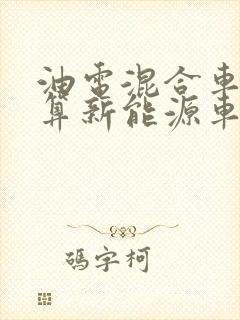 油電混合車
算新能源車
碼字柯